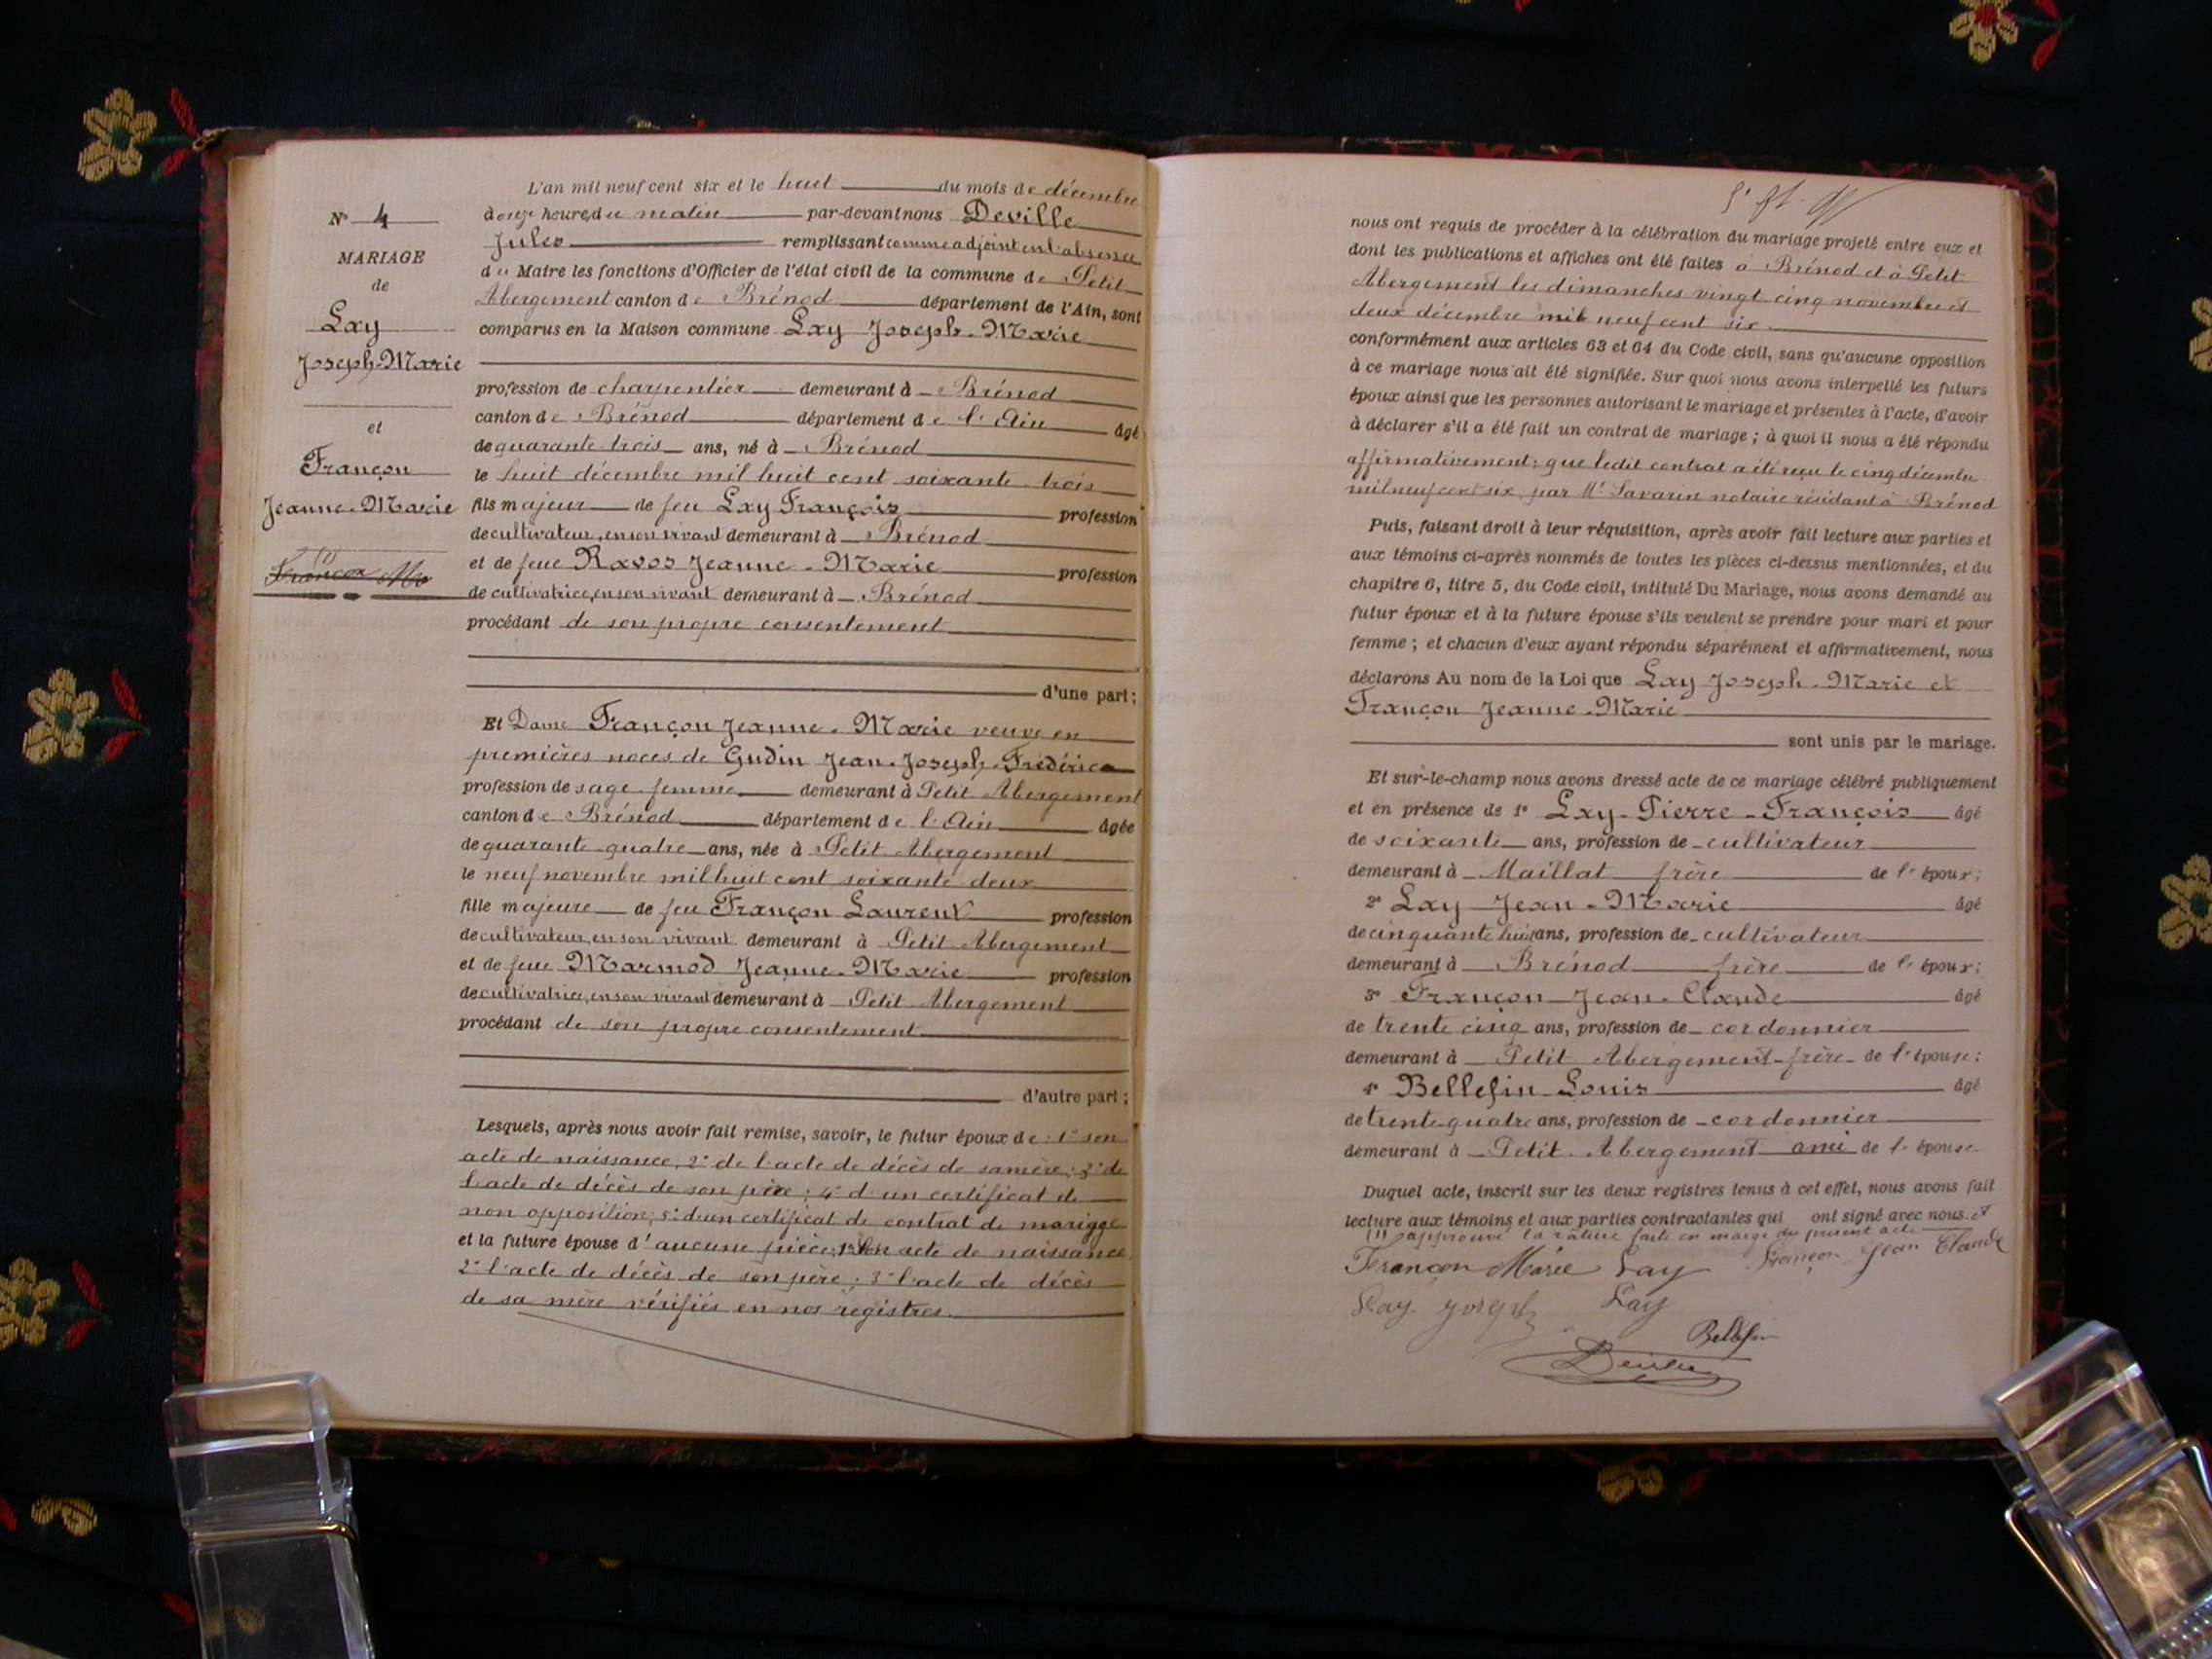 L'an mil neuf cent six et le huit du mois de décembre
à onze heures du matin par-devant nous Deville
Jules remplissant comme adjoint en l'absence
du Maire les fonctions d'Officier de l'état civil de la commune de Petit
Abergement canton de Brénod département de l'Ain, sont
comparus en la Maison commune Lay Joseph-Marie
profession de charpentier demeurant à Brénod
canton de Brénod département de l'Ain âgé
de quarante-trois ans, né à Brénod
le huit décembre mil huit cent soixante-trois
fils majeur de feu Lay François profession
de cultivateur, en son vivant demeurant à Brénod
et de feue Ravos Jeanne-Marie profession
de cultivatrice, en son vivant demeurant à Brénod
procédant de son propre consentement
d'une part;
Et Dame Françon Jeanne-Marie veuve en
premières noces de Gudin Jean-Joseph-Frédéric
profession de sage-femme demeurant à Petit Abergement
canton de Brénod département de l'Ain âgée
de quarante-quatre ans, née à Petit Abergement
le neuf novembre mil huit cent soixante-deux
fille majeure de feu Françon Laurent profession
de cultivateur, en son vivant demeurant à Petit Abergement
et de feue Marmod Jeanne-Marie profession
de cultivatrice, en son vivant demeurant à Petit Abergement
procédant de son propre consentement
d'autre part;
Lesquels, après nous avoir fait remise, savoir, le futur époux de: 1° son
acte de naissance; 2° de l'acte de décès de sa mère; 3° de
l'acte de décès de son père; 4° d'un certificat de
non opposition; 5° d'un certificat de contrat de mariage
et la future épouse d'aucune pièce; 1° Son acte de naissance
2° l'acte de décès de son père; 3° l'acte de décès
de sa mère vérifiés en nos registres.
N° 4
MARIAGE
de
Lay
Joseph-Marie
et
Françon
Jeanne-Marie
(1)
nous ont requis de procéder à la célébration du mariage projeté entre eux et
dont les publications et affiches ont été faites à Brénod et à Petit
Abergement les dimanches vingt-cinq novembre et
deux décembre mil neuf cent six.
conformément aux articles 63 et 64 du Code civil, sans qu'aucune opposition
à ce mariage nous ait été signifiée. Sur quoi nous avons interpellé les futurs
époux ainsi que les personnes autorisant le mariage et présentes à l'acte, d'avoir
à déclarer s'il a été fait un contrat de mariage; à quoi il nous a été répondu
affirmativement; que ledit contrat a été reçu le cinq décembre
mil neuf cent six, par Me Savarin notaire résidant à Brénod
Puis, faisant droit à leur réquisition, après avoir fait lecture aux parties et
aux témoins ci-après nommés de toutes les pièces ci-dessus mentionnées, et du
chapitre 6, titre 5, du Code civil, intitulé Du Mariage, nous avons demandé au
futur époux et à la future épouse s'ils veulent se prendre pour mari et pour
femme; et chacun d'eux ayant répondu séparément et affirmativement, nous
déclarons Au nom de la Loi que Lay Joseph-Marie et
Françon Jeanne-Marie
sont unis par le mariage.
Et sur-le-champ nous avons dressé acte de ce mariage célébré publiquement
et en présence de 1° Lay-Pierre-François âgé
de soixante ans, profession de cultivateur
demeurant à Maillat frère de l'époux;
2° Lay Jean-Marie âgé
de cinquante huit ans, profession de cultivateur
demeurant à Brénod frère de l'époux;
3° Françon Jean-Claude âgé
de trente cinq ans, profession de cordonnier
demeurant à Petit Abergement frère de l'épouse;
4° Bellefin Louis âgé
de trente-quatre ans, profession de cordonnier
demeurant à Petit-Abergement ami de l'épouse.
Duquel acte, inscrit sur les deux registres tenus à cet effet, nous avons fait
lecture aux témoins et aux parties contractantes qui ont signé avec nous. et
(1) approuvé la rature faite en marge du présent acte
Françon Marie Lay Françon Jean Claude
Lay Joseph Lay
Bellefin
Deville